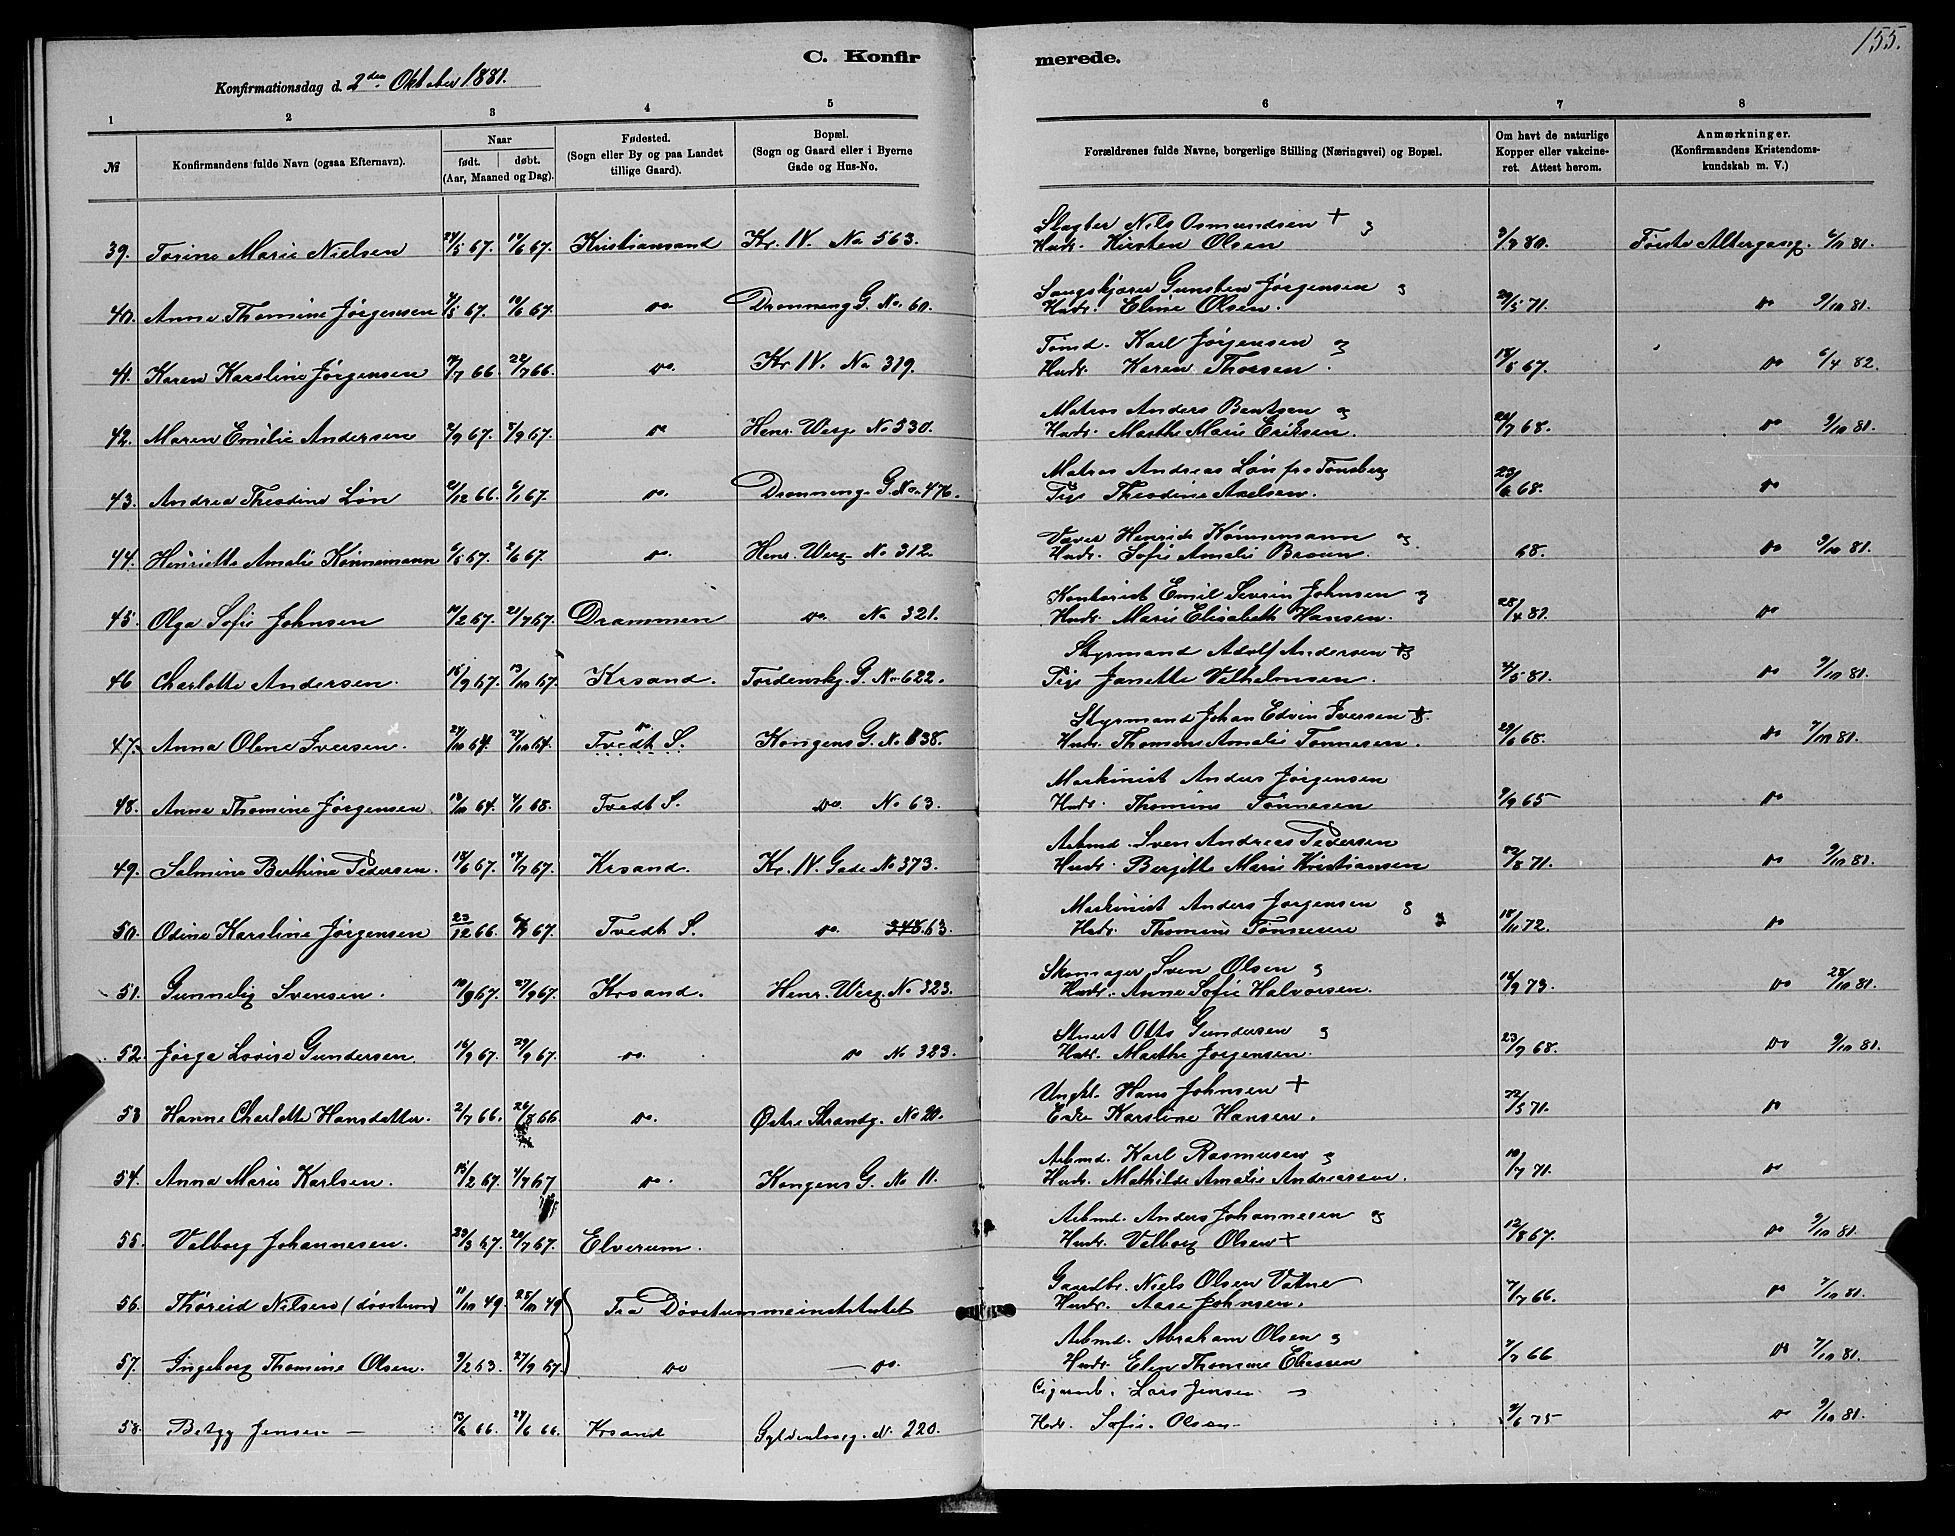 155.
C. Konfirmerede.
Konfirmationsdag d. 2den Oktober 1881.
1 2 3 4 5 6 7 8
№
Konfirmandens fulde Navn (ogsaa Efternavn).
Naar
født. døbt.
(Aar, Maaned og Dag).
Fødested.
(Sogn eller By og paa Landet
tillige Gaard).
Bopæl.
(Sogn og Gaard eller i Byerne
Gade og Hus-No.
Forældrenes fulde Navne, borgerlige Stilling (Næringsvei) og Bopæl.
Om havt de naturlige
Kopper eller vakcine-
ret. Attest herom.
Anmærkninger.
(Konfirmandens Kristendoms-
kundskab m. V.)
Slagter Nils Osmundsen + og
39. Torine Marie Nielsen 24/5 67. 12/6 67. Kristiansand Kr. IV. No 563. Hudr. Kirsten Olsen 9/7 80. Første Altergang. 6/11 81.
Gunsten Jørgensen og
40. Anne Thomine Jørgensen 4/5 67. 10/6 67. do. Dronning G. No. 60. Hudr. Eline Olsen. 29/5 71. do 9/10 81.
Tømd. Karl Jørgensen og
41. Karen Karsline Jørgensen 7/7 66. 22/7 66. do. Kr. IV. No 319. Hudr. Karen Thorsen. 18/5 67. do 6/4 82.
Matros Anders Bentsen og
42. Maren Emilie Andersen 2/9 67. 8/9 67. do Henr. Werg. No 530. Hudr. Marthe Marie Eriksen. 20/7 68. do 9/10 81.
Matros Andreas Løn fra Tønsberg
43. Andrea Theodine Løn 6/12 66. 6/1 67. do. Dronning. G. No. 476. Pige Theodine Axelsen. 23/6 68. do
Væver Henrich Kønnemann og
44. Henriette Amalie Kønnemann 6/5 67. 2/6 67. do. Henr. Werg. No 312. Hudr. Sofie Amalie Braun. 68. do 9/10 81.
Kontorist Emil Severin Johnsen og
45. Olga Sofie Johnsen 10/2 67. 21/7 67. Drammen do. No 321. Hudr. Marie Elisabeth Hansen. 28/4 81. do
Styrmand Adolf Andersen og
46 Charlotte Andersen. 15/9 67. 13/10 67. Krsand. Tordenskj. G. No 622. Pige Janette Vilhelmsen. 4/5 81. do 9/10 81.
Styrmand Johan Edvin Iversen
47. Anna Oline Iversen. do Tvedt S. Kongens G. No 38. Hudr. Thomine Amalie Tønnesen. 29/6 68. do 7/10 81.
Maskinist Anders Jørgensen
48. Anne Thomine Jørgensen. Tvedt S. do. No 63. Hudr. Thomine Tønnesen 9/9 65 do
Arbmd. Sven Andreas Pedersen
49. Salmine Berthine Pedersen. 18/6 67. 14/7 67. Krsand. Kr. IV. Gade No 373. Hudr. Bergitte Marie Kristiansen 22/8 71. do 9/10 81.
Maskinist Anders Jørgensen og
50. Odine Karsline Jørgensen 23/12 66. 67. Tvedt S. do. 63. Hudr. Thomine Tønnesen 18/11 72. do
Skomager Sven Olsen og
51. Gunnelig Svensen. 10/9 67. 27/9 67. Krsand. Henr. Werg. No 323. Hudr. Anne Sofie Halvorsen. 18/9 73. do 28/10 81.
Otto Gundersen og
52. Jørga Lovise Gundersen 16/9 67. 29/9 67. do. do No 323. Hudr. Marthe Jørgensen. 23/7 68. do 9/10 81.
Ungkl. Hans Johnsen +
53 Hanne Charlotte Hansdatter. 2/7 66. 26/8 66. do. Østre Strandg. No 20. Enke Karsline Hansen. 71. do
Arbmd. Karl Rasmusen og
54. Anna Marie Karlsen. 15/2 67. 4/7 67 do. Kongens G. No 11. Hudr. Mathilde Amalie Andreassen. 10/7 71. do
Arbmd. Anders Johannesen og
55. Valborg Johannesen. 29/3 67. 20/7 67. Elverum. Hudr. Valborg Olsen + 12/8 67. do 9/10 81.
Gaardbr. Niels Olsen Vatne
56. Thøreid Nilsen (døvstum) 11/10 49. 28/10 49 Fra Døvstummeinstitutet Hudr. Aase Johnsen. 7/7 66. do 7/10 81.
Arbmd. Abraham Olsen og
57. Ingeborg Thomine Olsen. 9/2 63. 27/9 67. do do. Hudr. Elen Thomine Eliassen 7/7 66 do 7/10 81.
Cigarmb. Lars Jensen
58. Betzy Jensen 13/6 66. 24/6 66. Krsand Gyldenløvesg. N. 220. Hudr. Sofie Olsen 9/6 75 do 9/10 81.